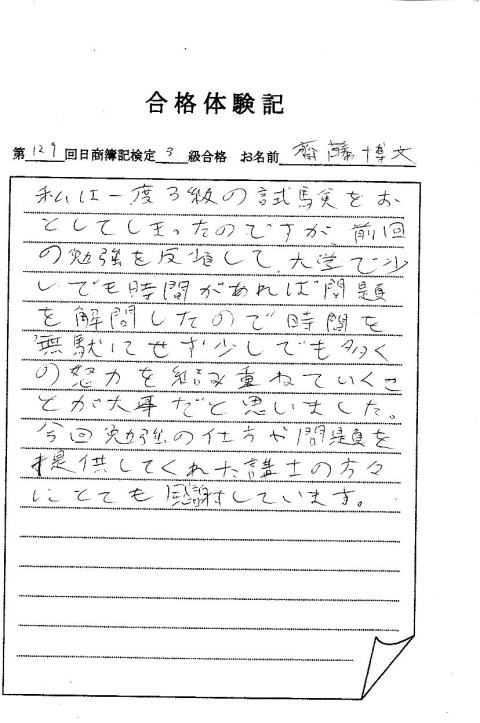 合格体験記
第129回日商簿記検定3級合格 お名前 齋藤博文
私は一度3級の試験をお
としてしまったのですが、前回
の勉強を反省して、大学で少
しでも時間があれば問題
を解問したので時間を
無駄にせず少しでも多く
の努力を積み重ねていくこ
とが大事だと思いました。
今回勉強の仕方や問題を
提供してくれた講士の方々
にとても感謝しています。